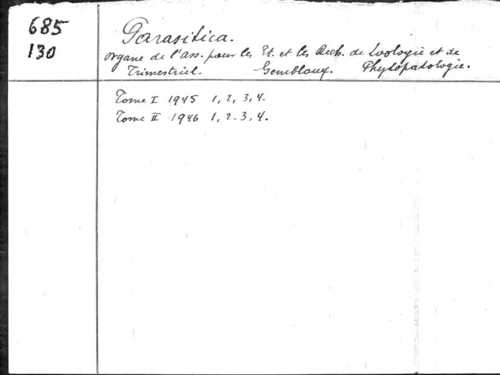 685
130
Parasitica.
Organe de l'Ass. pour les Et. et les Rech. de Zoologie et de
Trimestriel. Gembloux. Phytopatologie.
Tome I 1945 1, 2, 3, 4.
Tome II 1946 1, 2. 3, 4.